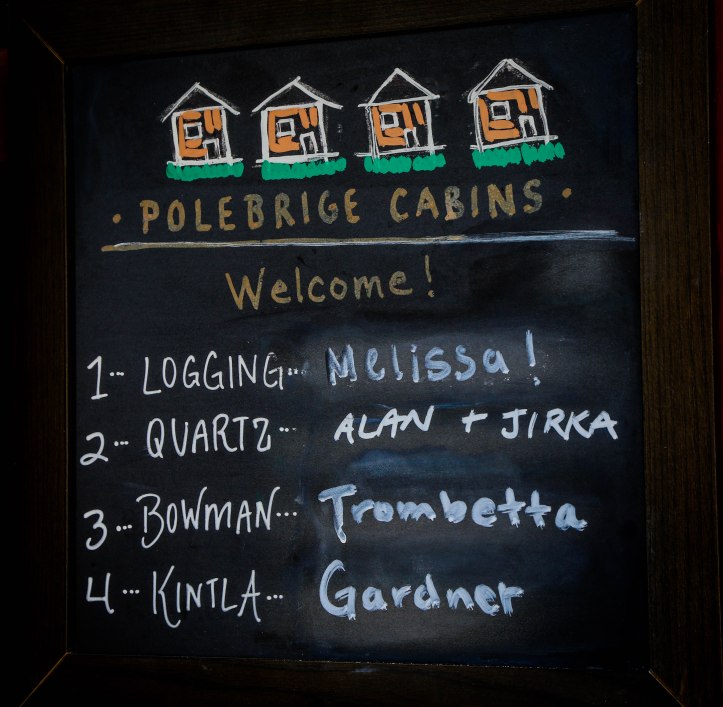 · POLEBRIGE CABINS ·
Welcome!
1·· LOGGING·· Melissa!
2··· QUARTZ··· ALAN + JIRKA
3··· BOWMAN··· Trombetta
4··· KINTLA··· Gardner